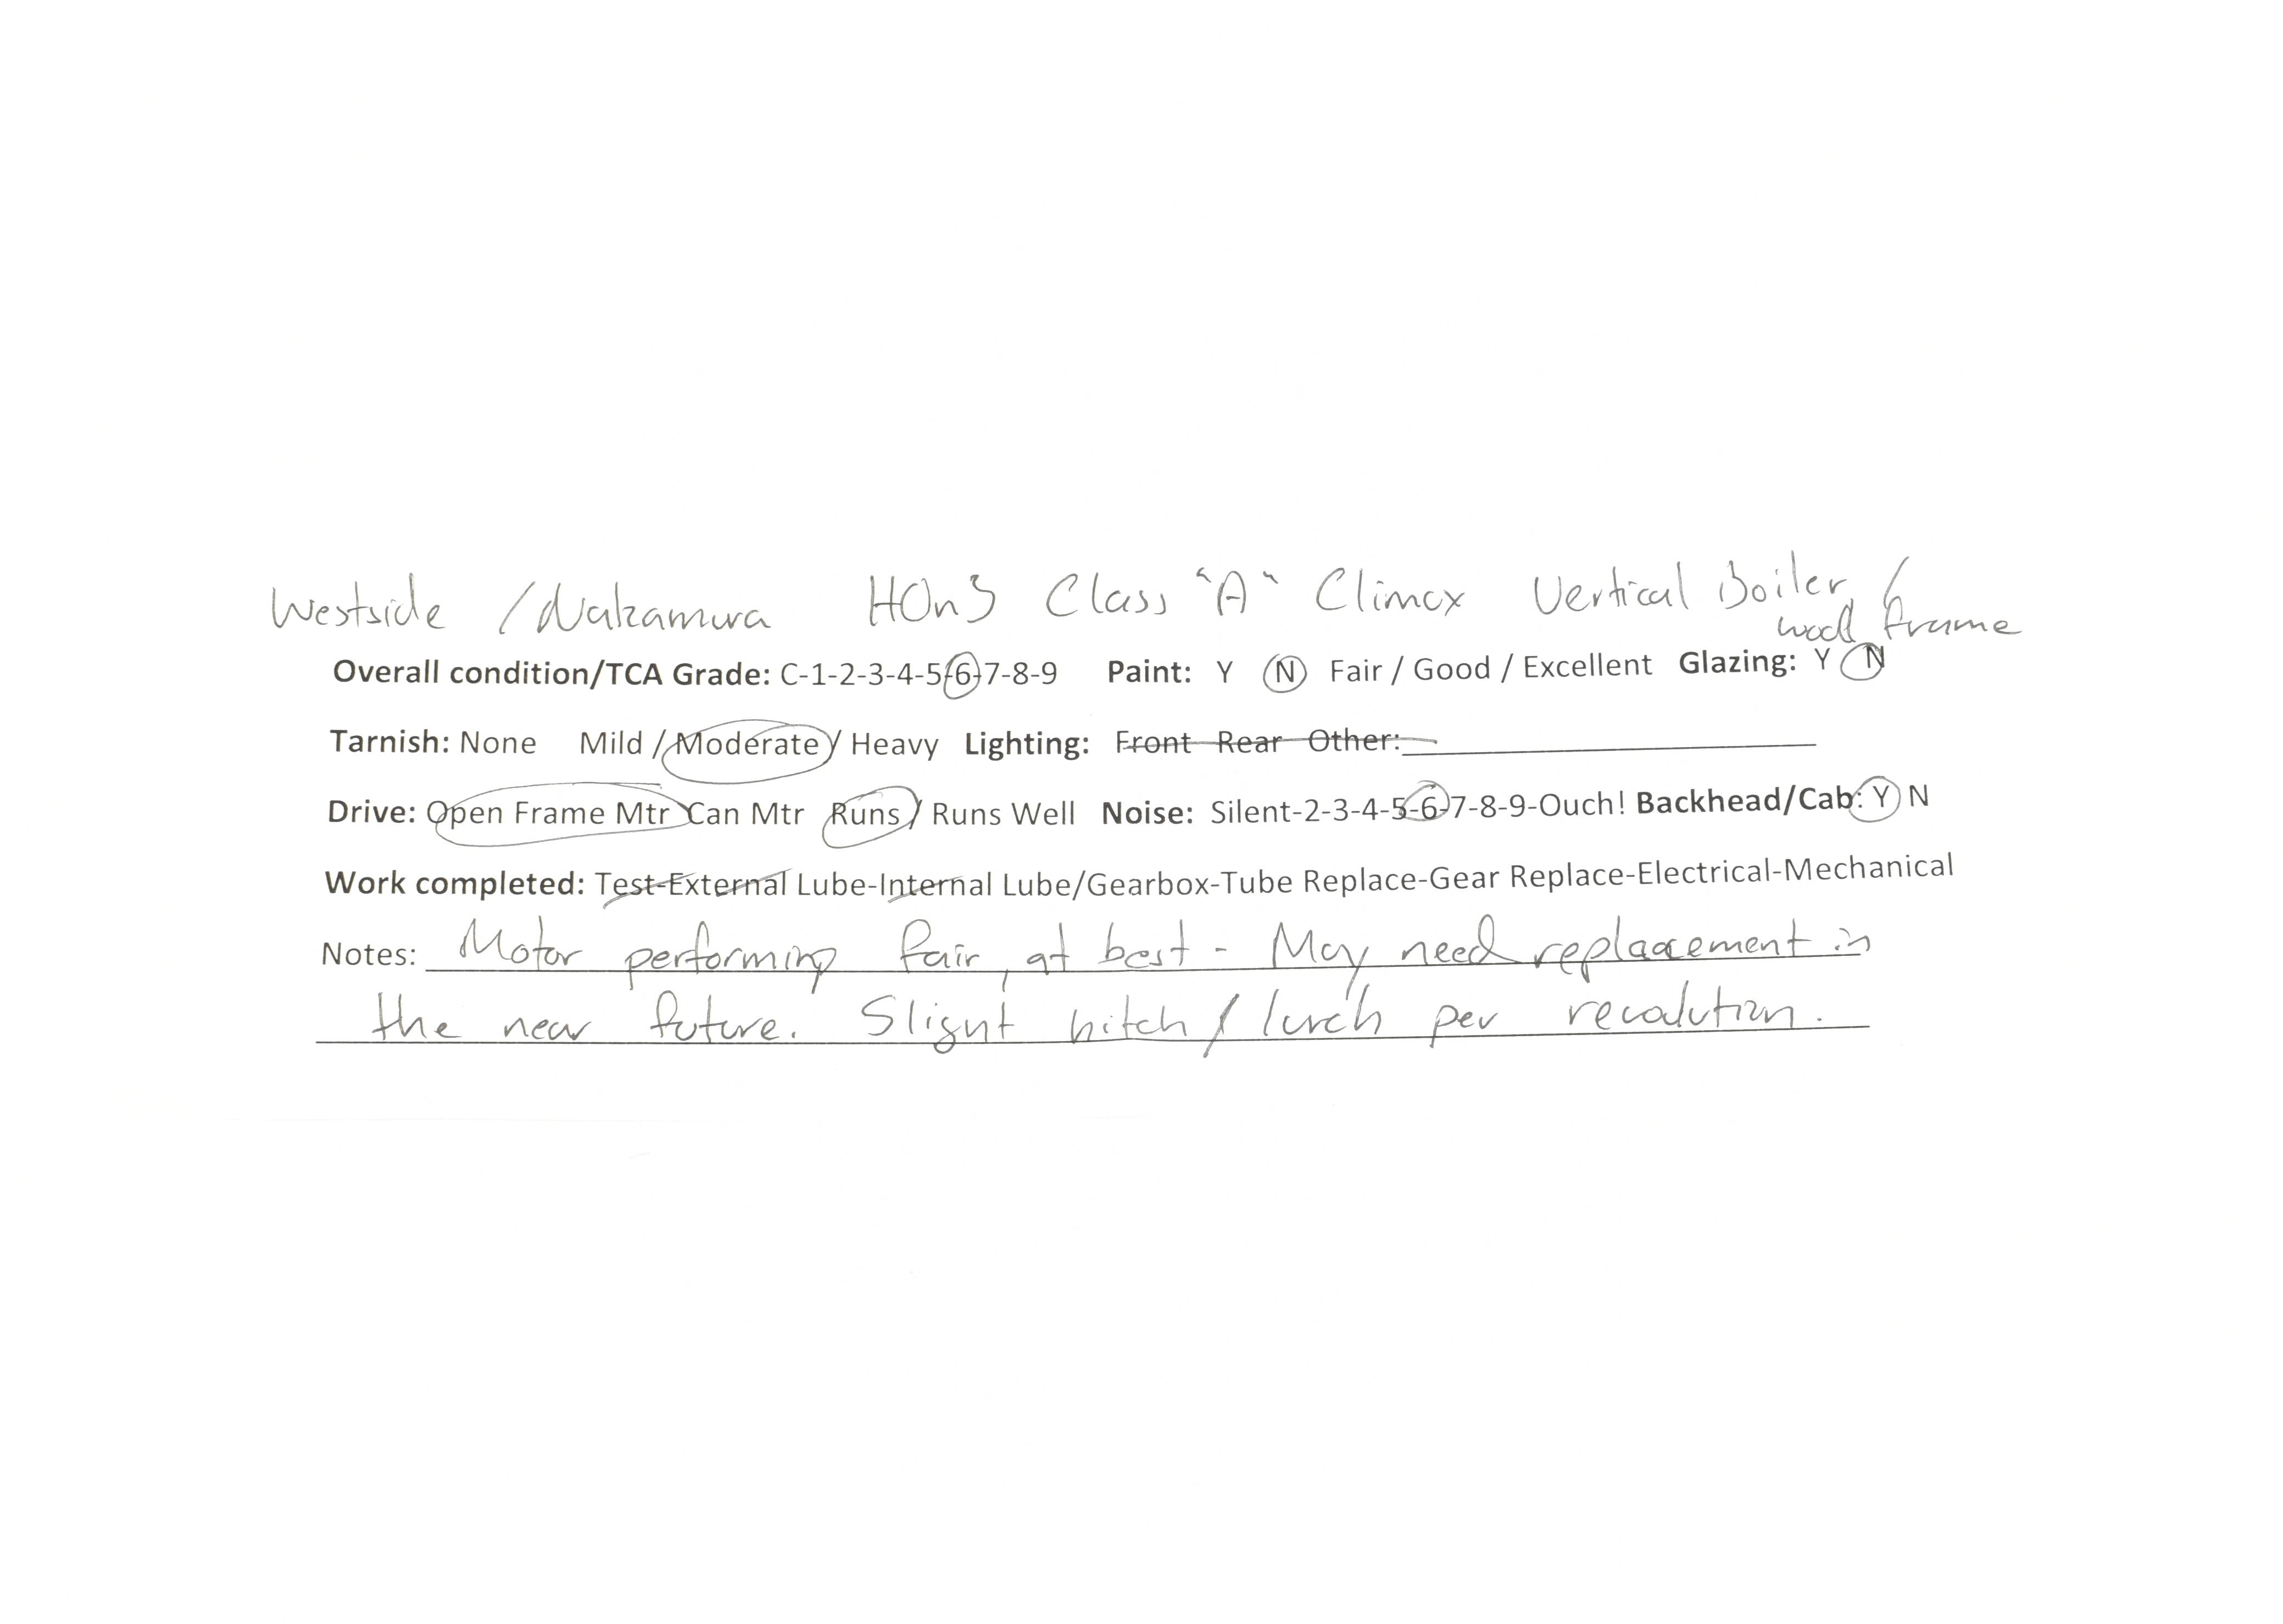 Westside / Nakamura HOn3 Class "A" Climax Vertical Boiler /
wood frame
Overall condition/TCA Grade: C-1-2-3-4-5-6-7-8-9 Paint: Y N Fair / Good / Excellent Glazing: Y N
Tarnish: None Mild / Moderate / Heavy Lighting: Front Rear Other:
Drive: Open Frame Mtr Can Mtr Runs / Runs Well Noise: Silent-2-3-4-5-6-7-8-9-Ouch! Backhead/Cab: Y N
Work completed: Test-External Lube-Internal Lube/Gearbox-Tube Replace-Gear Replace-Electrical-Mechanical
Notes: Motor performing fair, at best - May need replacement in
the near future. Slight hitch / lurch per revolution.